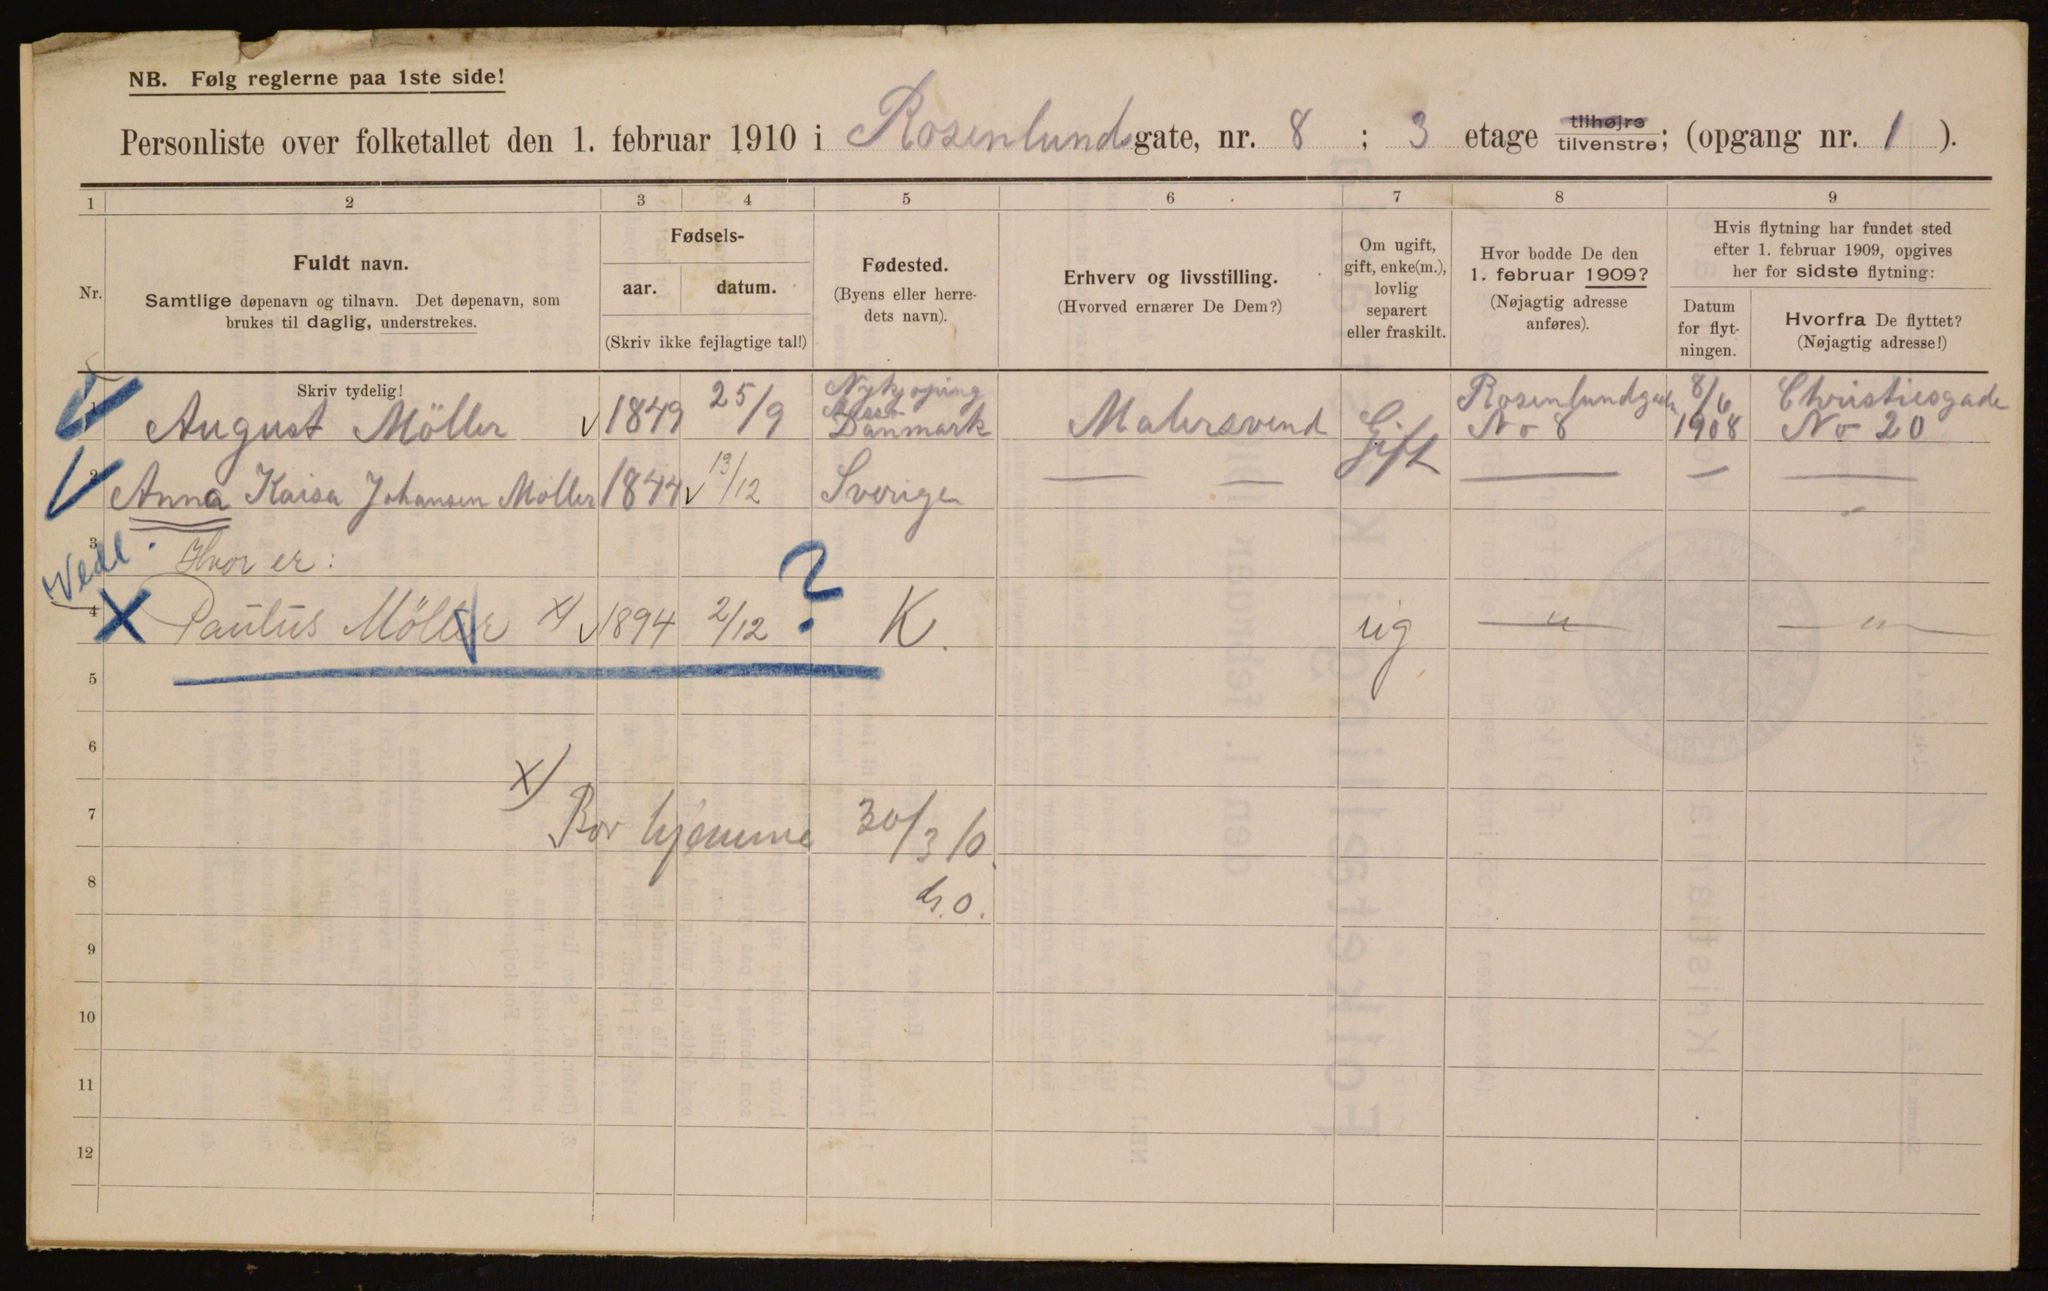 NB. Følg reglerne paa 1ste side!
Personliste over folketallet den 1. februar 1910 i Rosenlundsgate, nr. 8 ; 3 etage tilhøjre tilvenstre; (opgang nr. 1 ).
1 2 3 4 5 6 7 8 9
Nr.
Fuldt navn.
Samtlige døpenavn og tilnavn. Det døpenavn, som
brukes til daglig, understrekes.
Skriv tydelig!
Fødsels-
aar. datum.
(Skriv ikke fejlagtige tal!)
Fødested.
(Byens eller herre-
dets navn).
Erhverv og livsstilling.
(Hvorved ernærer De Dem?)
Om ugift,
gift, enke(m.),
lovlig
separert
eller fraskilt.
Hvor bodde De den
1. februar 1909?
(Nøjagtig adresse
anføres).
Hvis flytning har fundet sted
efter 1. februar 1909, opgives
her for sidste flytning:
Datum
for flyt-
ningen.
Hvorfra De flyttet?
(Nøjagtig adresse!)
1 August Möller 1849 25/9 Nykjøping Danmark Malersvend Gift Rosenlundgade No 8 8/6 1908 Christiesgade No 20
2 Anna Kaisa Johansen Möller 1844 13/12 Sverige — — — — —
3 Hvor er:
Vedl.
4 X Paulus Möller x) 1894 2/12 ? K. ug — " — — " —
5
6
x)
7 Bor hjemme 30/3 10.
8
9
10
11
12